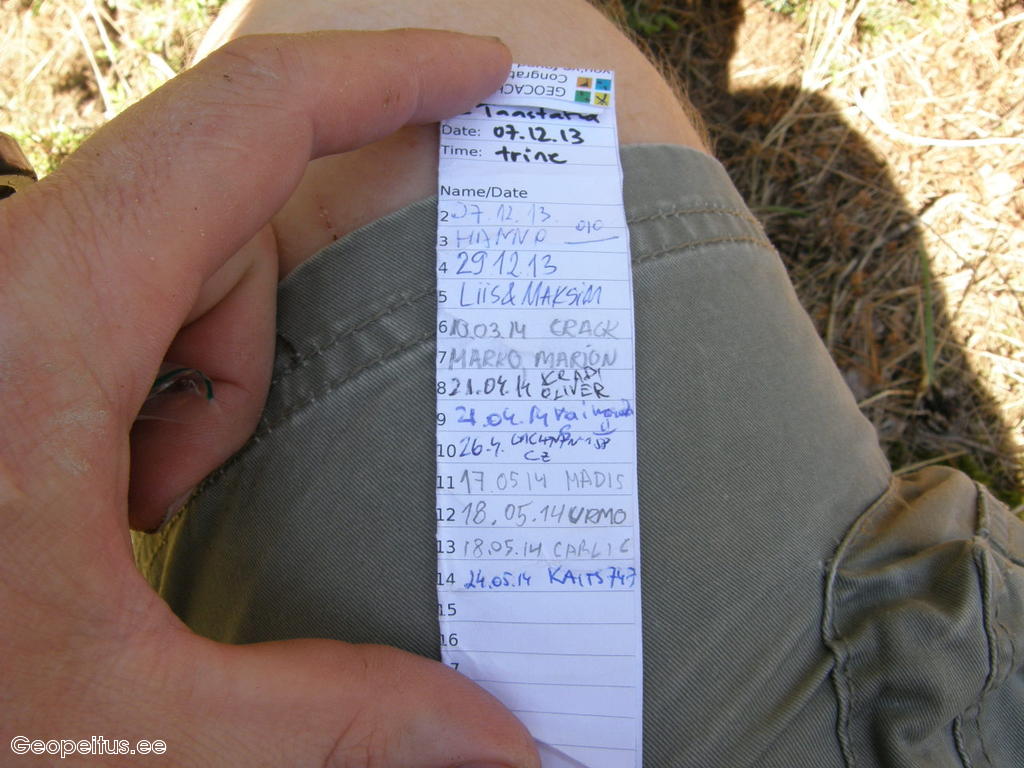 GEOCACH
Congrat
you've found
Date: 07.12.13
Time: trine
Name/Date
2 07.12.13.
3 HANNO
4 29.12.13
5 LIIS&MAKSIM
6 10.03.14 CRACK
7 MARKO MARION
8 21.04.14 KRADI OLIVER
9 21.04.14
10 26.4. CZ
11 17.05.14 MADIS
12 18.05.14 URMO
13 18.05.14
14 24.05.14 KAITS747
15
16
7
Geopeitus.ee